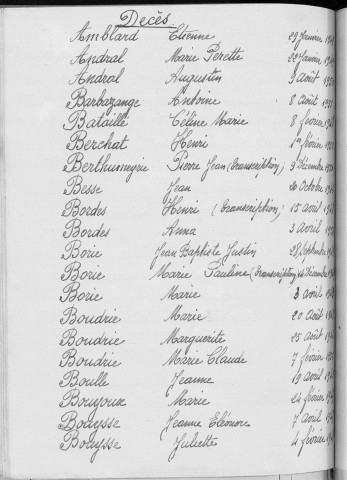 Décès.
Amblard Etienne 29 Janvier
Andral Marie Perette 22 Janvier
Andral Augustin 9 août
Barbazange Antoine 8 août
Bataille Céline Marie 8 février
Berchat Henri 1er février
Berthumeyrie Pierre Jean (transcription) 9 Décembre
Besse Jean 20 octobre
Bordes Henri (transcription) 15 avril
Bordes Anna 3 avril
Borie Jean Baptiste Justin 28 Septembre
Borie Marie Pauline (transcription) Décembre
Borie Marie 3 avril
Boudrie Marie 20 août
Boudrie Marguerite 25 août
Boudrie Marie Claude 7 février
Boulle Jeanne 19 avril
Bouyoux Marie 24 février
Bouysse Jeanne Eléonore 7 avril
Bouysse Juliette 4 février